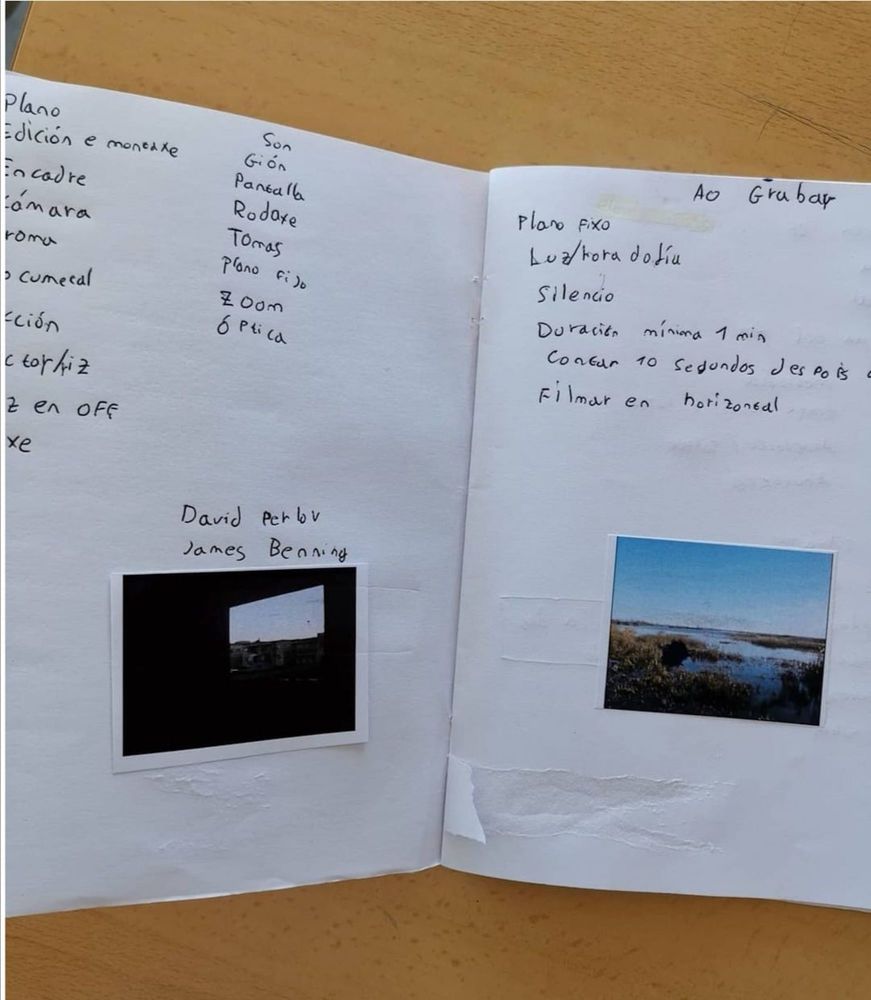 Plano
Edición e montaxe
Encadre
Cámara
roma
cumetal
cción
ctor/riz
z en OFF
xe
Son
Gión
Pantalla
Rodaxe
Tomas
Plano fijo
Zoom
Óptica
David Perlov
James Benning
Ao Grabar
Plano Fixo
Luz/hora do día
Silencio
Duración mínima 1 min
Contar 10 segundos despois
Filmar en horizontal